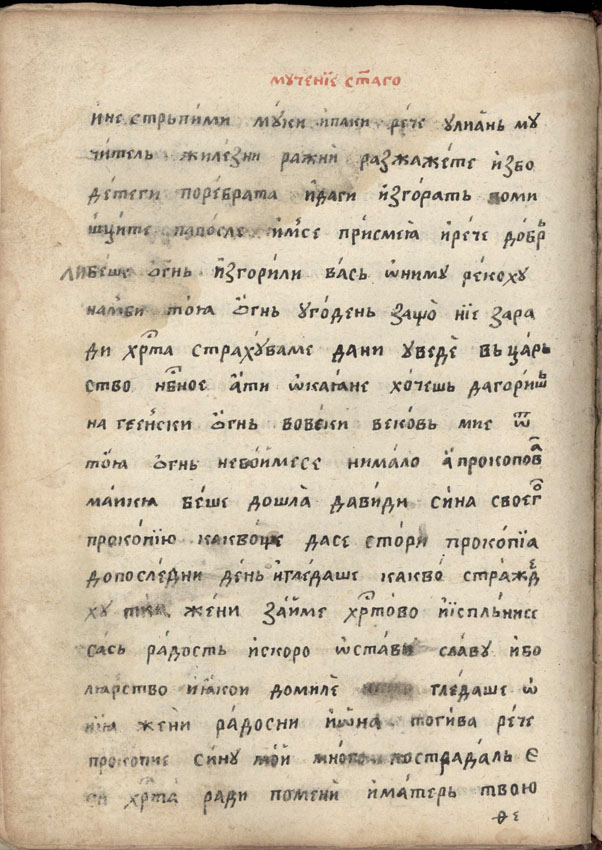 мꙋченїе ст҃аго
и не стрьпими мꙋки ипаки рече ꙋлиань мꙋ
читель жилезни ражни разжажете избо
детеги поребрата идаги изгорать
имсе присмеꙗ ирече добрѣ
ли беше огнь изгорили вась ѡниму рекохꙋ
тоꙗ огнь ꙋгодень защо нїе зара
ди хрⷭта страхꙋваме дани ꙋведе вьцарь
ство нбⷭное ати ѡкаꙗне хочешь дагоришь
на геенски огнь вовеки вековь мие ѿ
тоꙗ огнь небоимесе нимало апрокопова
маикꙗ беше дошла давиди сина своего
прокопїю каквоще дасе стори прокопїа
допоследни день игледаше какво стражде
хꙋ жени заиме хрⷭтово иїспльнисе
сась радость искоро ѡстави славꙋ ибо
лꙗрство иꙗкои домиле гледаше ѡ
нїꙗ жени радосни иѡна тогива рече
прокопие синꙋ мои много пострадаль е
си хрⷭта ради помени иматерь твою
ѳе